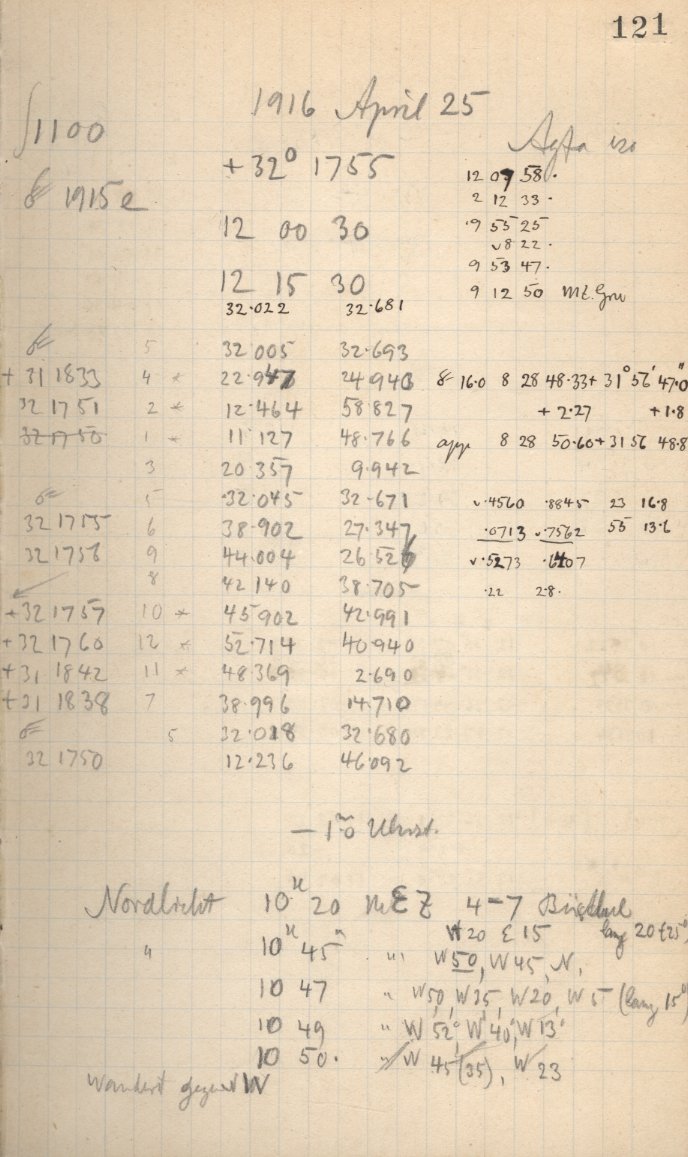 121
1916 April 25
1100
+32° 1755
1915 e
12 00 30
12 15 30
32.022 32.681
Agfa iso
12 07 58.
2 12 33.
9 55 25
8 22.
9 53 47.
9 12 50
5 32.005 32.693
+31 1833 4 * 22.947 24.943
32 1751 2 * 12.464 58.827
32 1750 1 * 11.127 48.766
3 20.357 9.942
5 32.045 32.671
32 1755 6 38.902 27.347
32 1758 9 44.004 26.526
8 42.140 38.705
+32 1757 10 * 45.902 42.991
+32 1760 12 * 52.714 40.940
+31 1842 11 * 48.369 2.690
+31 1838 7 38.996 14.710
5 32.018 32.680
32 1750 12.236 46.092
16.0 8 28 48.33 + 31° 56' 47.0"
+ 2.27 + 1.8
app 8 28 50.60 + 31 56 48.8
.4560 .8845 23 16.8
.0713 .7562 55 13.6
.5273 .6407
.22 2.8.
Nordlicht 10ʰ 20 MEZ 4-7
W 20 E 15 lang 20 (25°)
" 10ʰ 45ᵐ " W 50, W 45, N.
10 47 " W 50, W 25, W 20, W 5 (lang 15°)
10 49 " W 52°, W 40°, W 13°
10 50. " W 45 (35), W 23
wandert gegen W